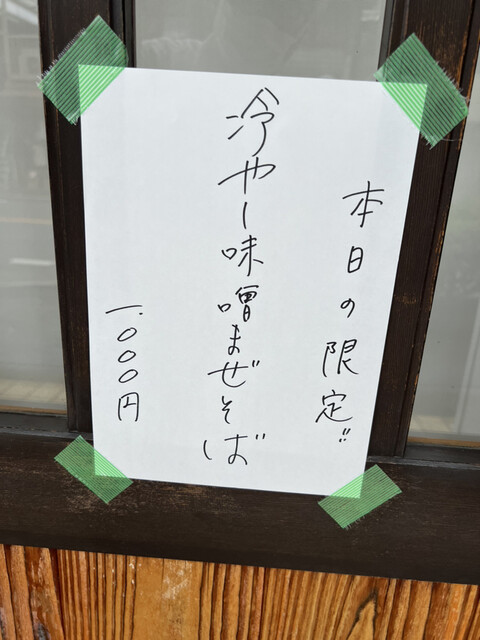 本日の限定!!
冷やし味噌まぜそば
一.000円